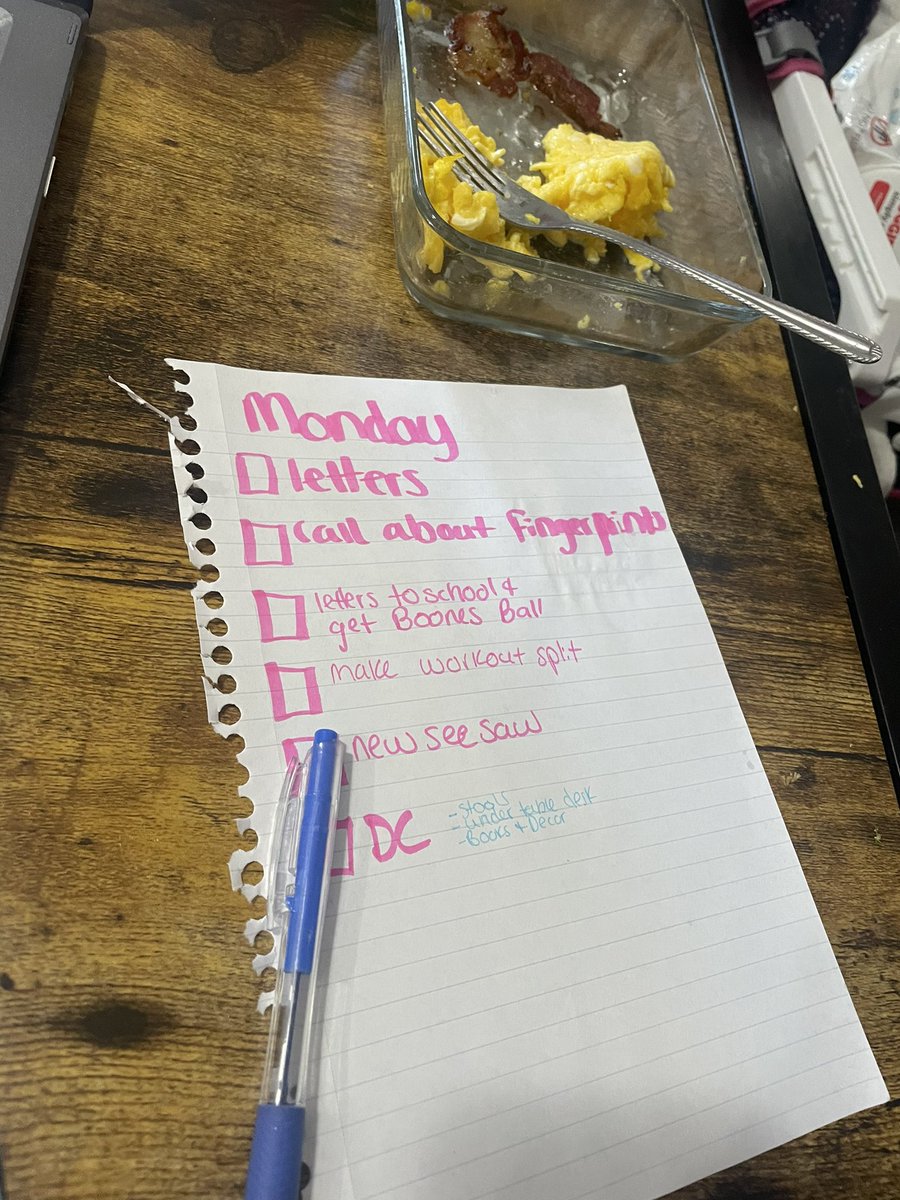 Monday
letters
call about fingerprints
letters to school &
get Boones Ball
make workout split
new see saw
DC
- Stools
- under table desk
- Books & Decor